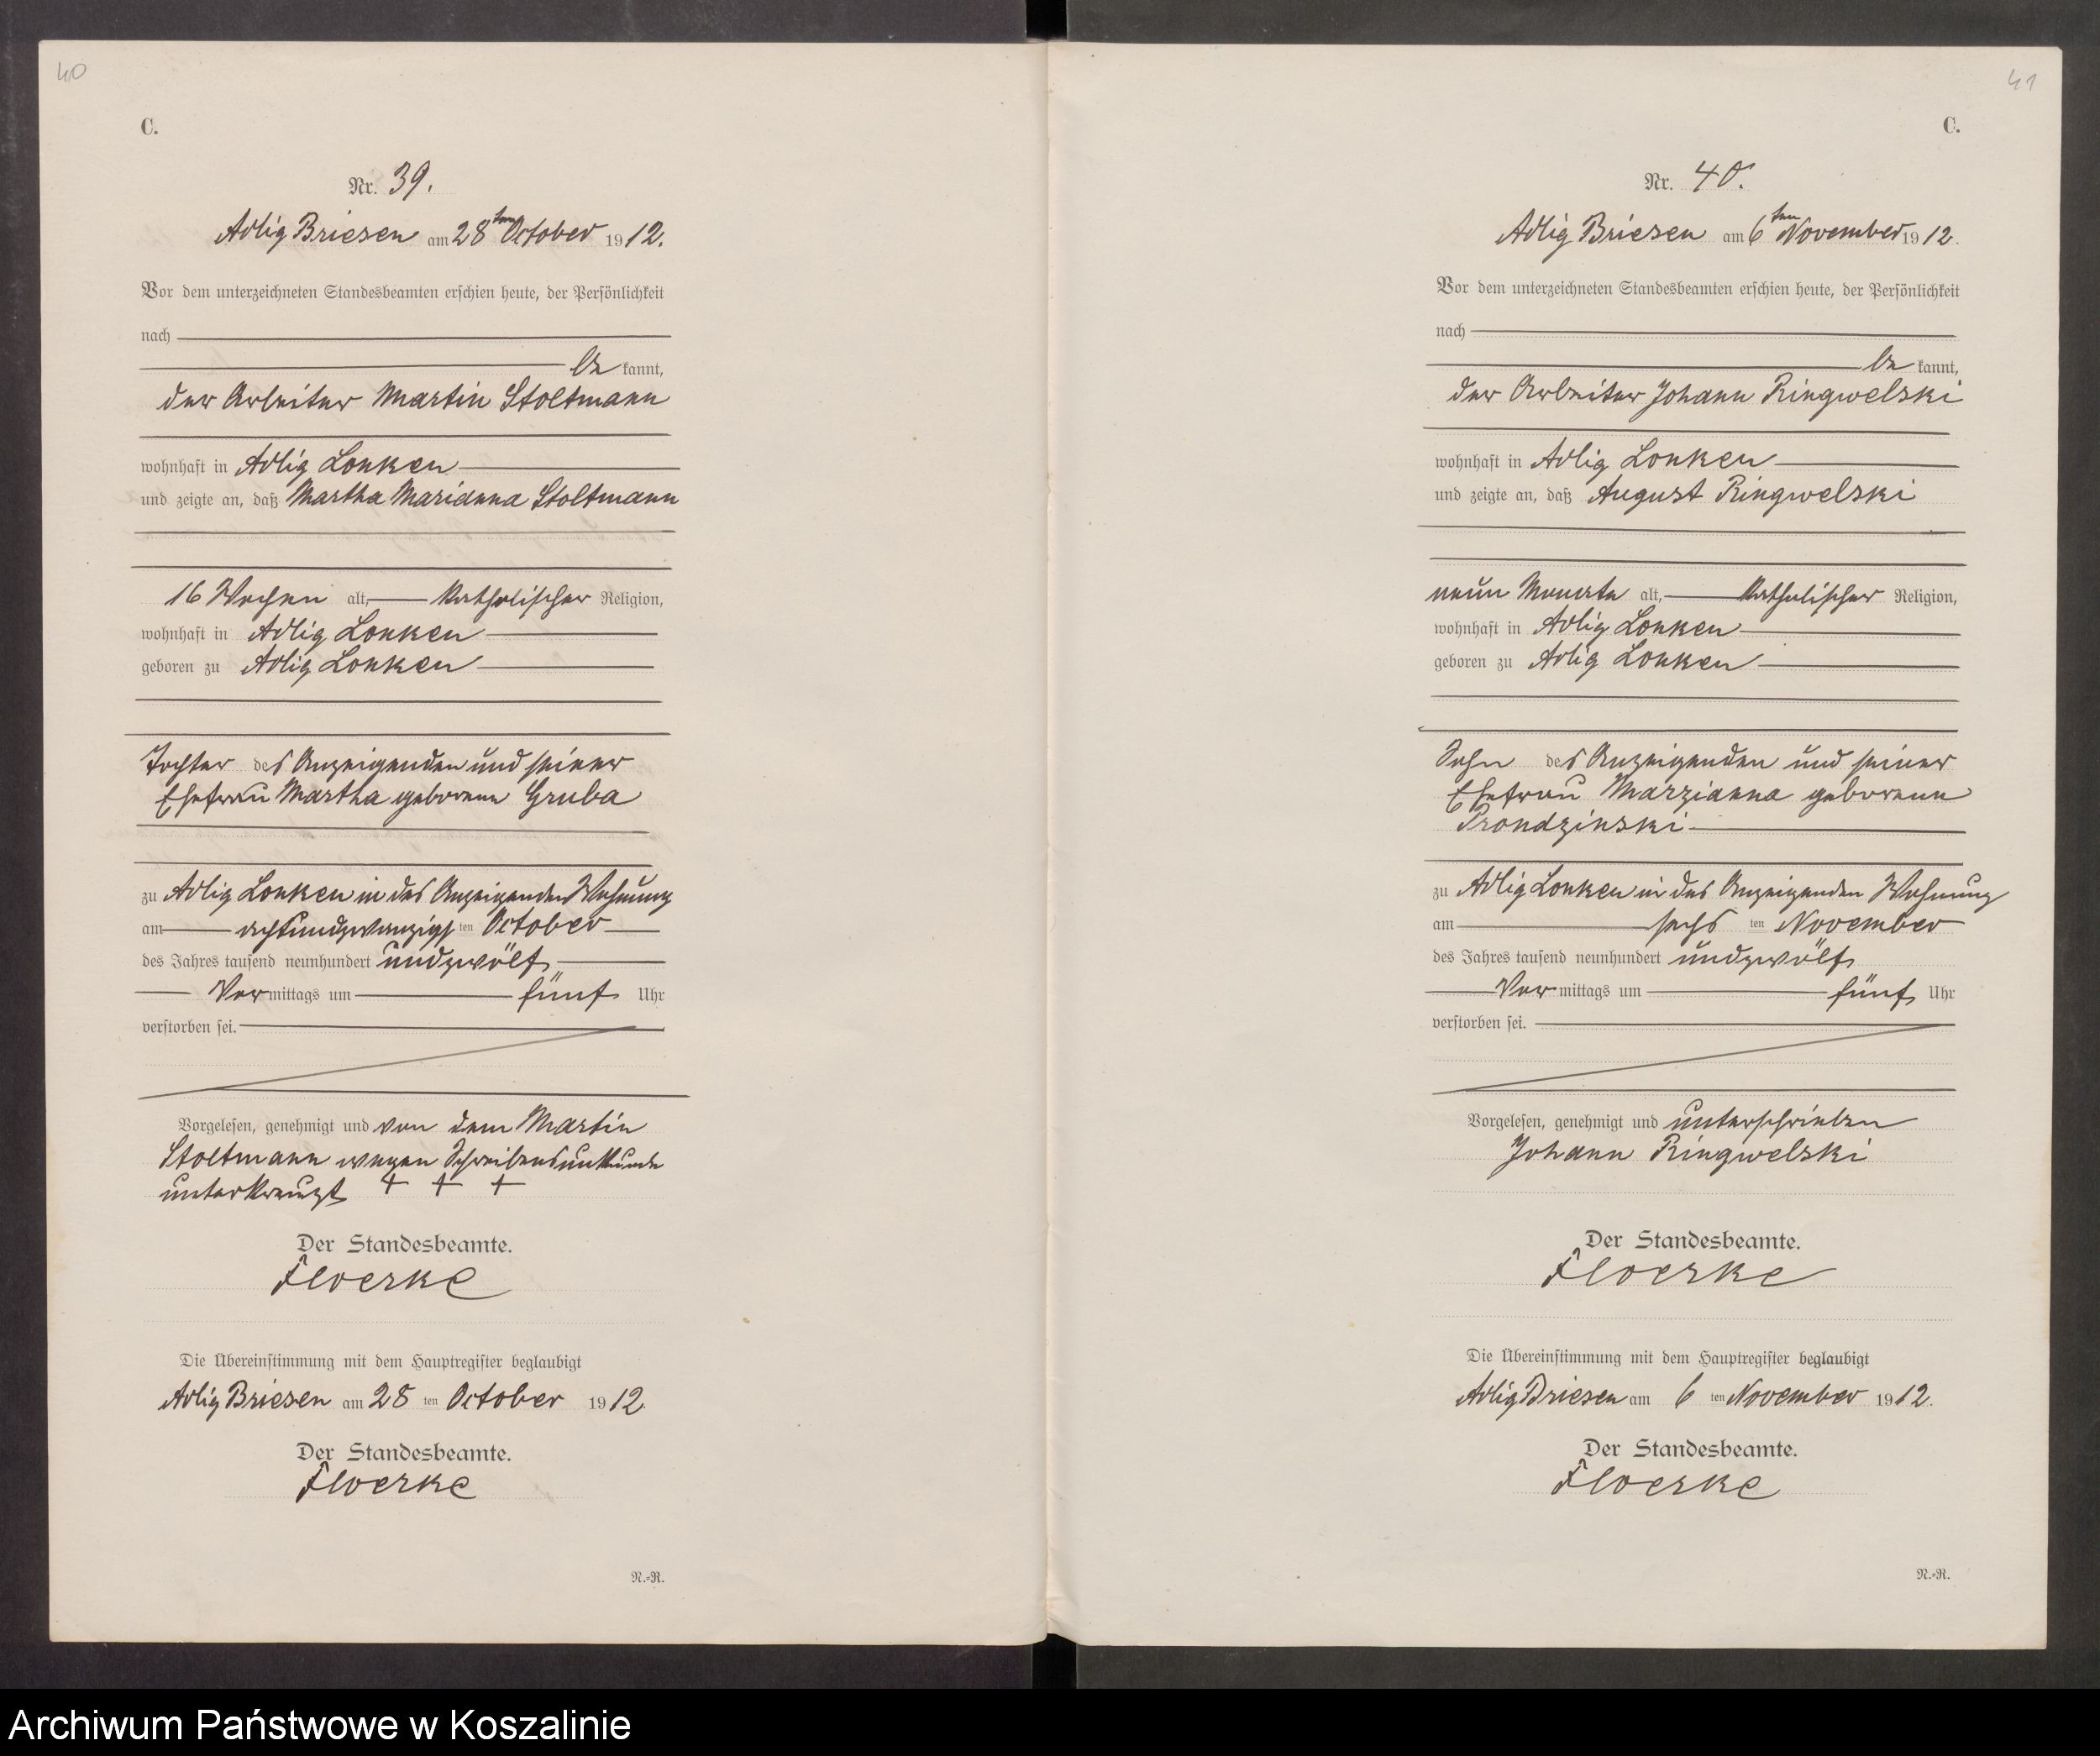 40
C.
Nr. 39.
Adlig Briesen am 28ten October 1912.
Vor dem unterzeichneten Standesbeamten erschien heute, der Persönlichkeit
nach
be kannt,
der Arbeiter Martin Stoltmann
wohnhaft in Adlig Lonken
und zeigte an, daß Martha Marianna Stoltmann
16 Wochen alt, katholischer Religion,
wohnhaft in Adlig Lonken
geboren zu Adlig Lonken
Tochter des Anzeigenden und seiner
Ehefrau Martha geborene Gruba
zu Adlig Lonken in des Anzeigenden Wohnung
am achtundzwanzigsten October
des Jahres tausend neunhundert undzwölf
Vormittags um fünf Uhr
verstorben sei.
Vorgelesen, genehmigt und von dem Martin
Stoltmann wegen Schreibensunkunde
unterkreuzt + + +
Der Standesbeamte.
Floerke
Die Übereinstimmung mit dem Hauptregister beglaubigt
Adlig Briesen am 28 ten October 1912.
Der Standesbeamte.
Floerke
N.=R.
41
C.
Nr. 40.
Adlig Briesen am 6ten November 1912.
Vor dem unterzeichneten Standesbeamten erschien heute, der Persönlichkeit
nach
be kannt,
der Arbeiter Johann Ringwelski
wohnhaft in Adlig Lonken
und zeigte an, daß August Ringwelski
neun Monate alt, katholischer Religion,
wohnhaft in Adlig Lonken
geboren zu Adlig Lonken
Sohn des Anzeigenden und seiner
Ehefrau Marzianna geborene
Prondzinski
zu Adlig Lonken in des Anzeigenden Wohnung
am sechs ten November
des Jahres tausend neunhundert undzwölf
Vormittags um fünf Uhr
verstorben sei.
Vorgelesen, genehmigt und unterschrieben
Johann Ringwelski
Der Standesbeamte.
Floerke
Die Übereinstimmung mit dem Hauptregister beglaubigt
Adlig Briesen am 6 ten November 1912.
Der Standesbeamte.
Floerke
N.=R.
Archiwum Państwowe w Koszalinie